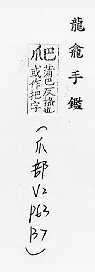 龍龕手鑑
爬蒲巴反搔也
或作把字
(爪部
V2
P63
B7)